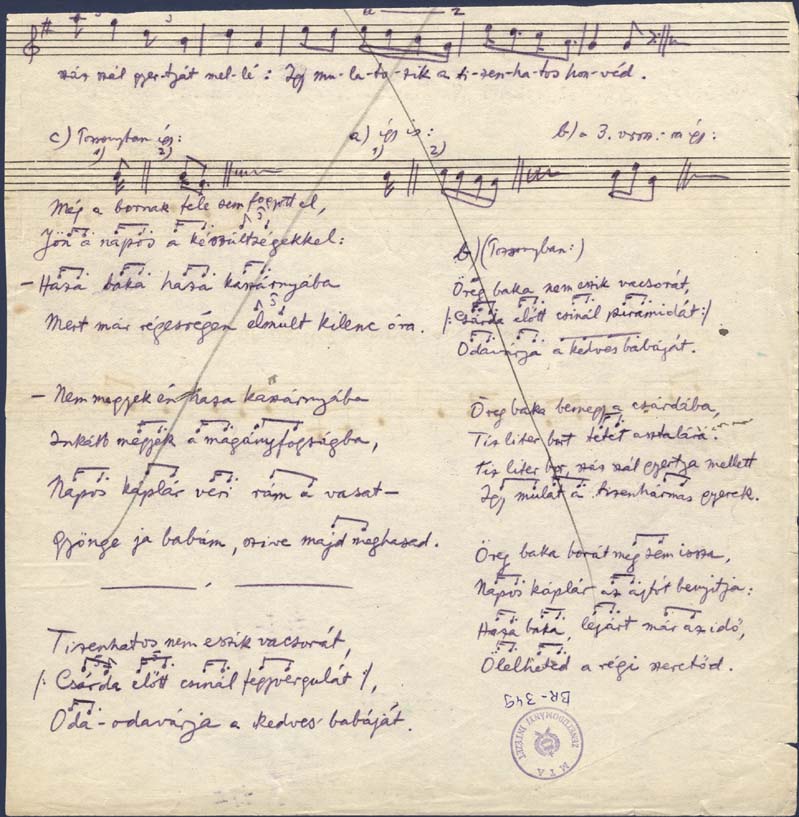 a ——— 2
3
száz szál gyertyát mel-lé: Így mu-la-to-zik a ti-zen-ha-tos hon-véd.
c) Tossonyban így:
1) 2)
a) így is:
1) 2)
b) a 3. versz.-ra így:
Még a bornak fele sem fogyott el,
Jön a napos a készültségekkel:
— Haza baka haza kaszárnyába
Mert már régesrégen elmult kilenc óra.
— Nem megyek én haza kaszárnyába
Inkább megyek a magányfogságba,
Napos káplár veri rám a vasat —
Gyönge ja babám, szive majd meghasad.
Tizenhatos nem eszik vacsorát,
/: Csárda előtt csinál fegyvergulát :/,
Oda-odavárja a kedves babáját.
b) (Tossonyban:)
Öreg baka nem eszik vacsorát,
/: Csárda előtt csinál piramidát :/
Odavárja a kedves babáját.
Öreg baka bemegy a csárdába,
Tíz liter bort tétet asztalára.
Tíz liter bor, száz szál gyertya mellett
Így mulat a tizenhármas gyerek.
Öreg baka borát meg sem issza,
Napos káplár az ajtót benyitja:
Haza baka, lejárt már az idő,
Ölelheted a régi szeretőd.
BR-345
MTA ZENETUDOMÁNYI INTÉZET